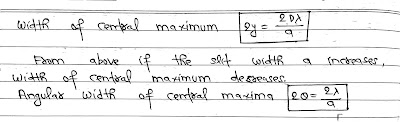 Width of central maximum 2y = 2Dλ/a
From above if the slit width a increases,
width of central maximum decreases.
Angular width of central maxima 2θ = 2λ/a